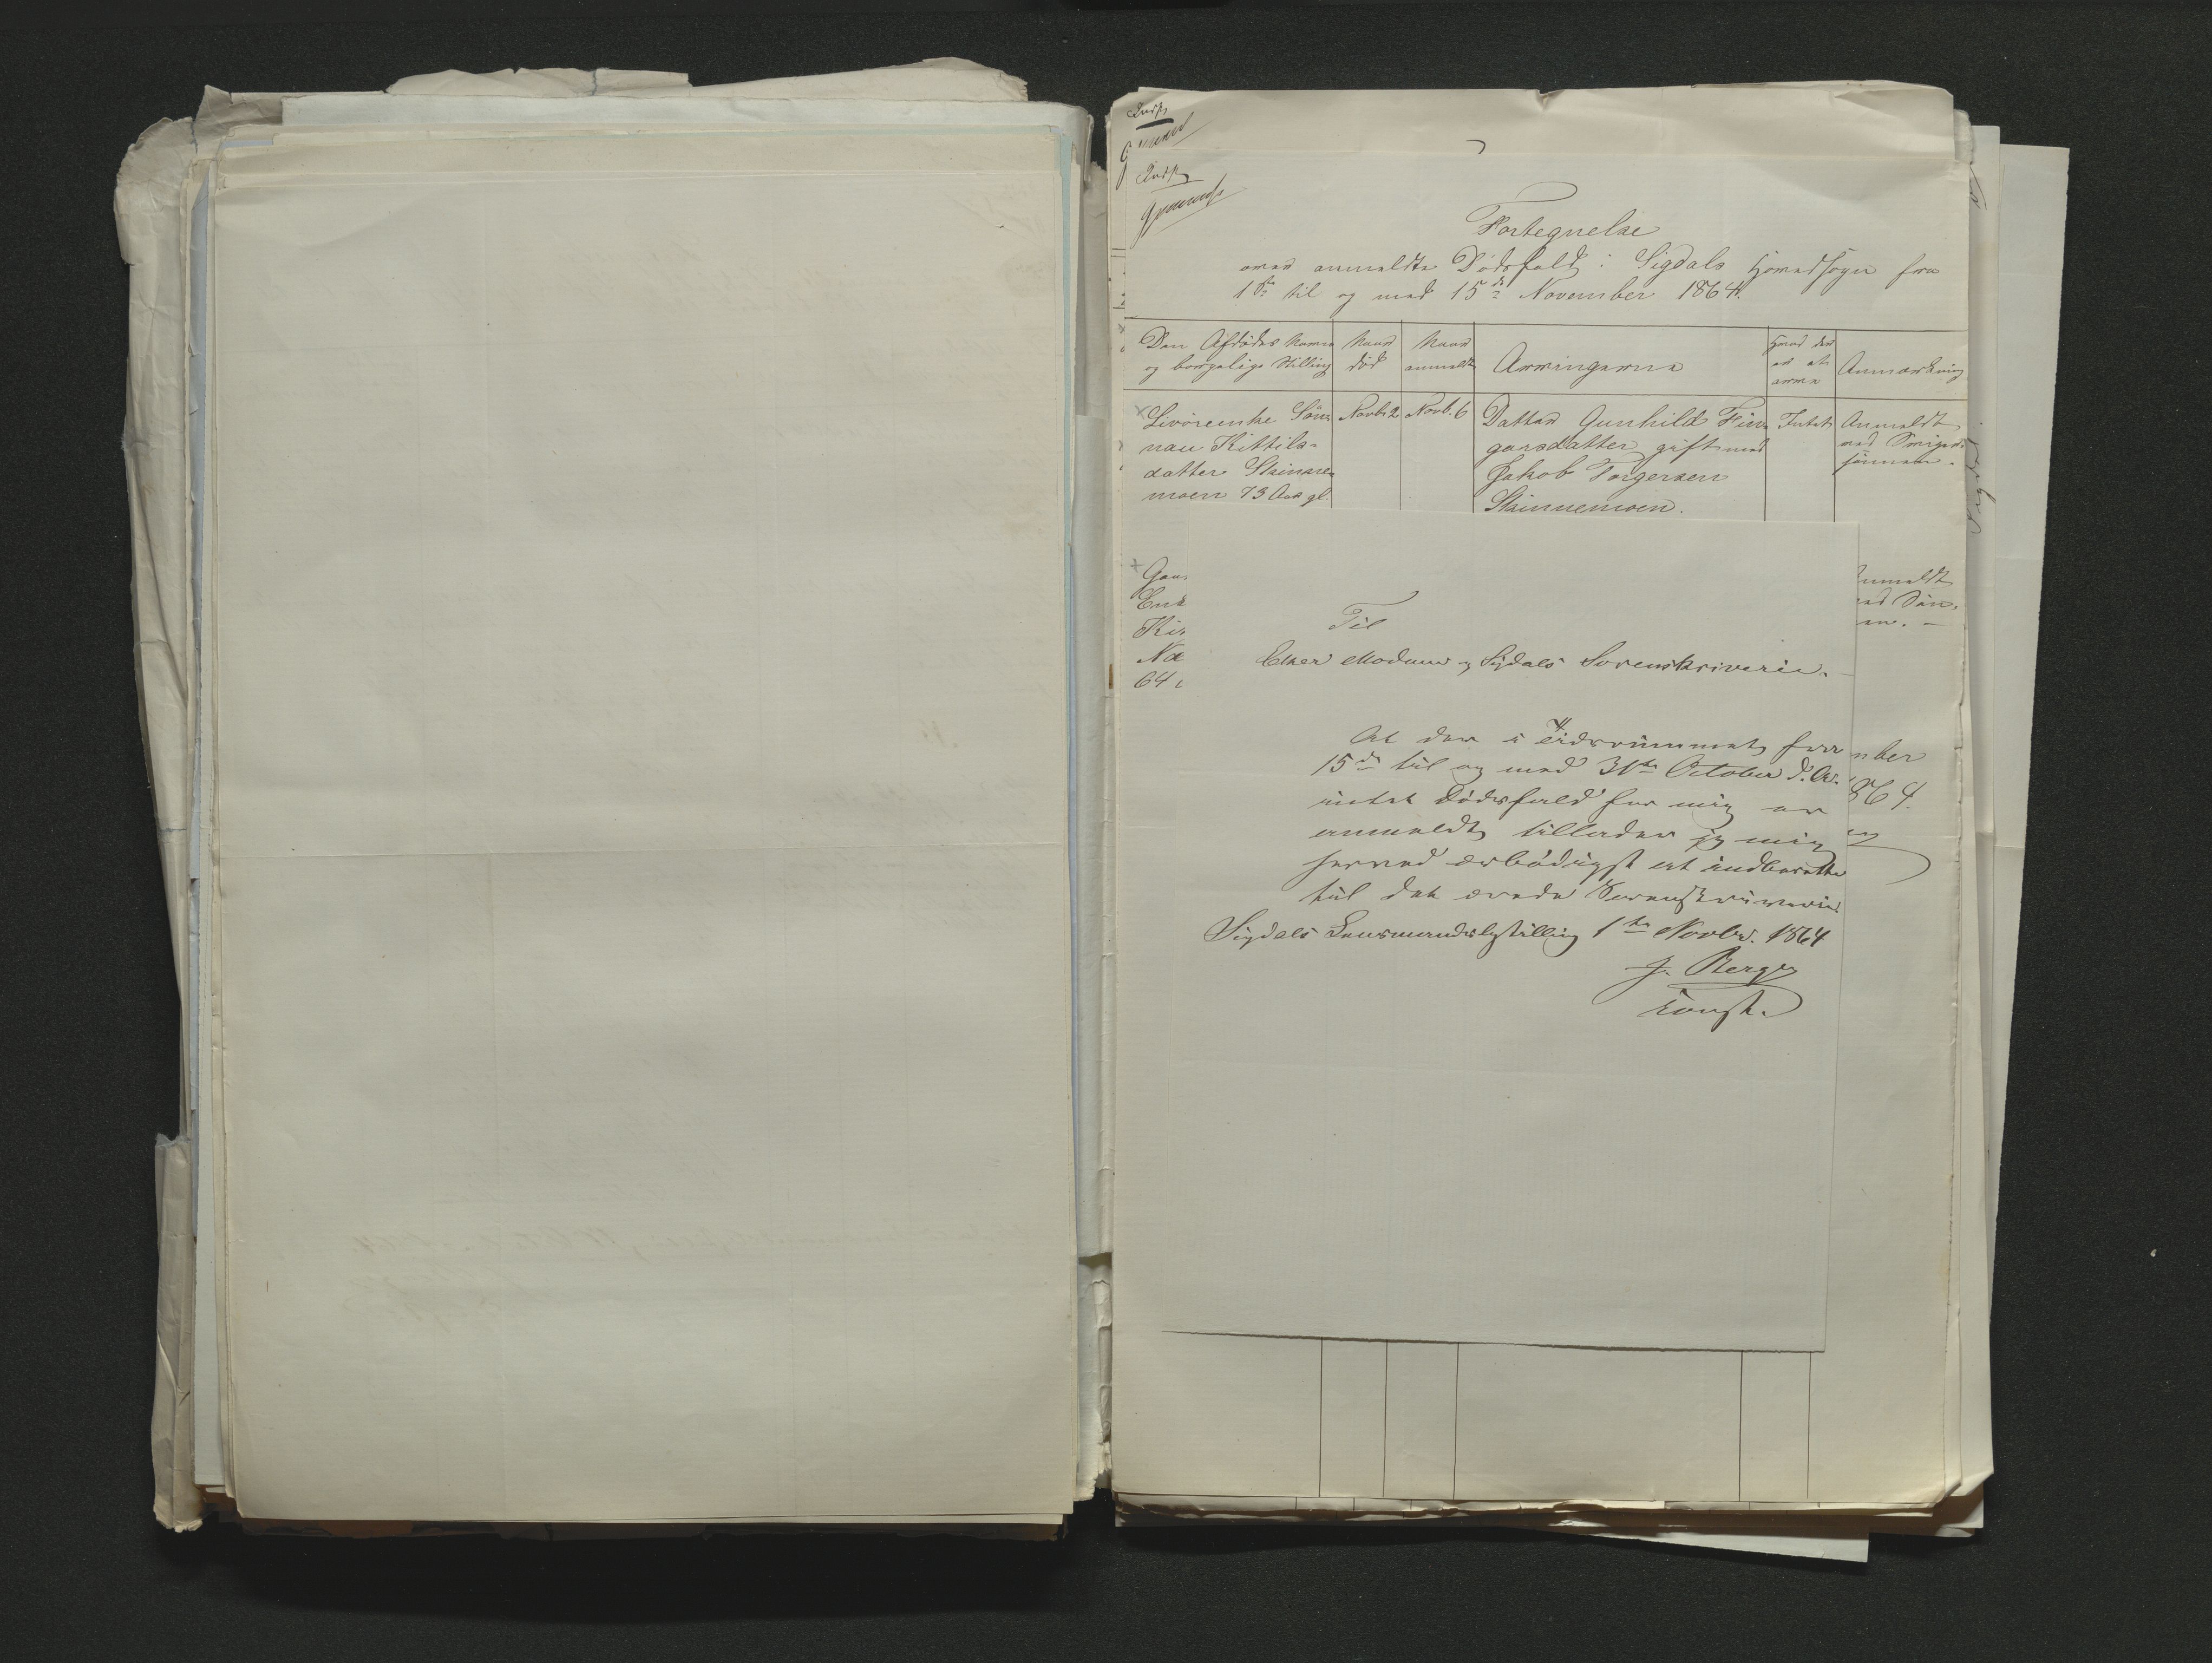 Indf.
Indf.
Fortegnelse
over anmeldte Dødsfald i Sigdals Hovedsogn fra
1ste til og med 15de November 1864.
Den Afdødes Navn
og borgerlige Stilling
Naar
død
Naar
anmeldt
Arvingerne
Hvad der
er at
arve
Anmærkning
Livörenke Sön-
nau Kittils-
datter Skinnes-
moen 73 Aar gl.
Novb. 2
Novb. 6
Datter Gunhild Fin-
garsdatter gift med
Jakob Torgersen
Skinnemoen.
Intet
Anmeldt
ved Sviger-
sønnen.
Gau
Enk
Kir
Na
64
anmeldt
ved Søn-
nen. –
mber
1864.
Til
Eker Modum og Sigdals Sorenskriverie.
At der i Tidsrummet fra
15de til og med 31te October d. A.
intet Dødsfald for mig er
anmeldt tillader jeg mig
herved ærbødigst at indberette
til det ærede Sorenskriverie
Sigdals Lensmandsbestilling 1ste Novbr. 1864
J. Berg
konst.